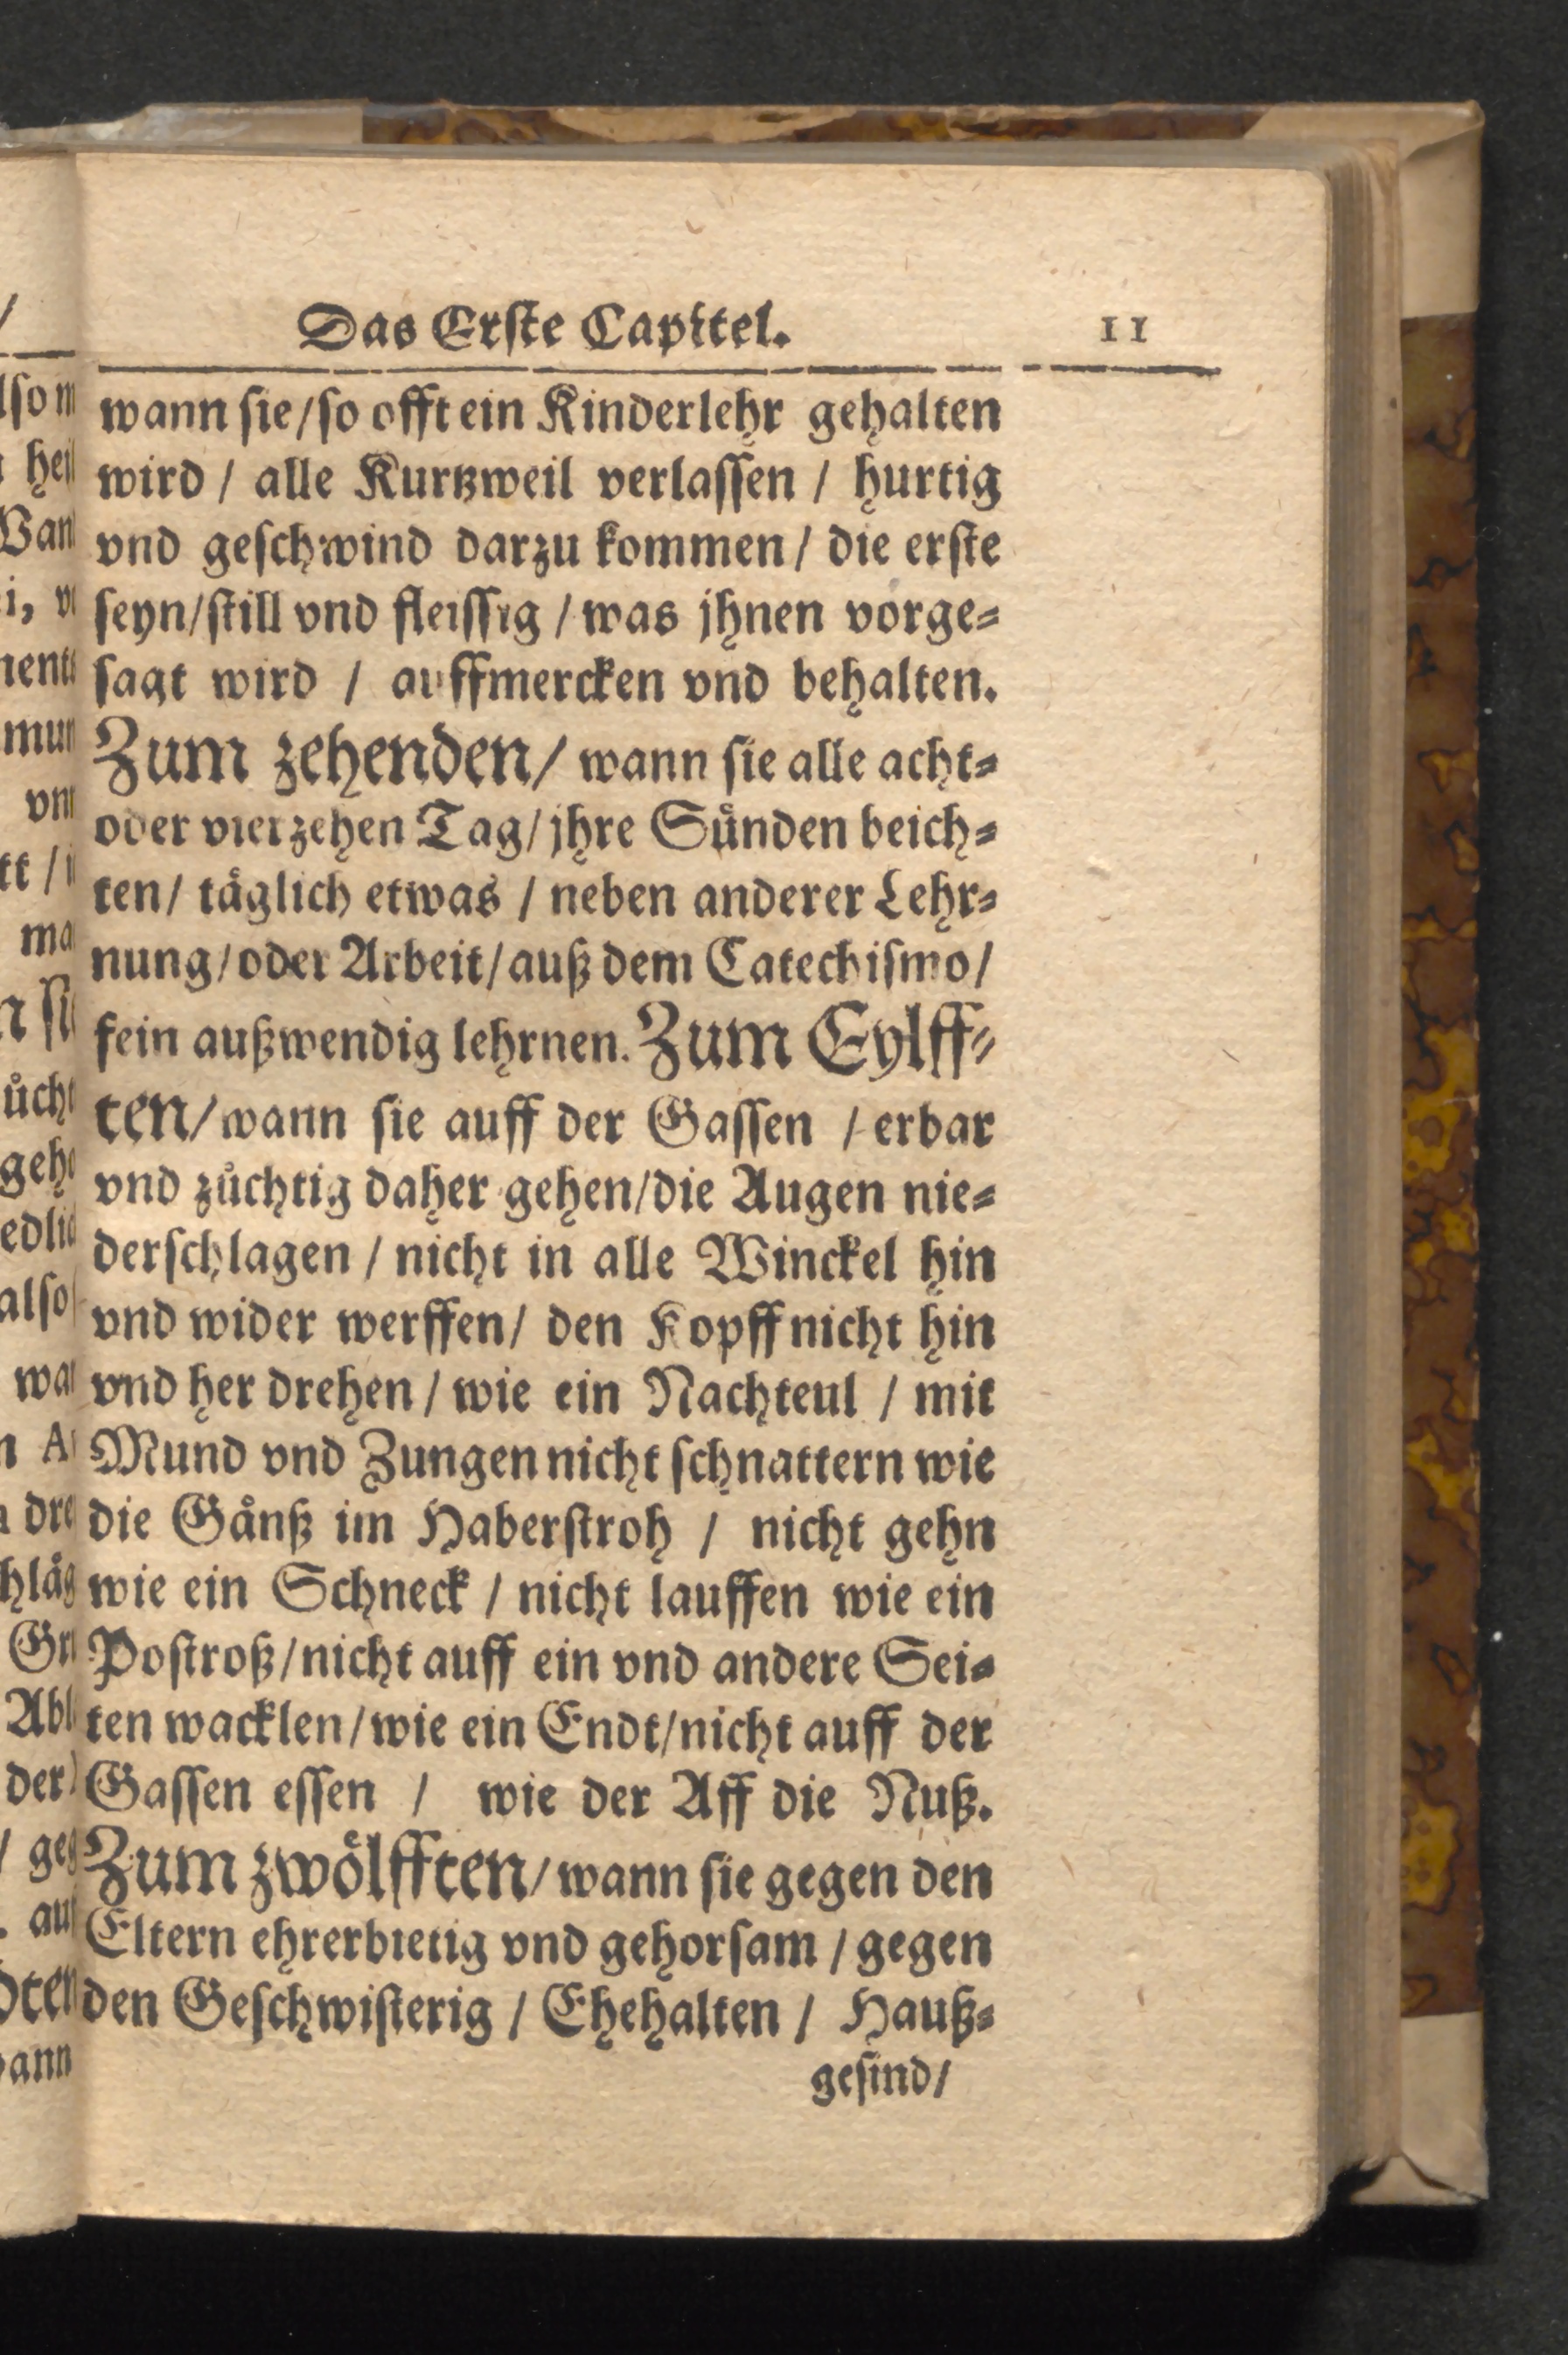 Das Erſte Capitel. 11
wann ſie/ſo offt ein Kinderlehr gehalten
wird / alle Kurtzweil verlaſſen / hurtig
vnd geſchwind darzu kommen / die erſte
ſeyn/ſtill vnd fleiſſig / was jhnen vorge⸗
ſagt wird / auffmercken vnd behalten.
Zum zehenden/ wann ſie alle acht⸗
oder vierzehen Tag/ jhre Suͤnden beich⸗
ten/ taͤglich etwas / neben anderer Lehr⸗
nung/oder Arbeit/auß dem Catechiſmo/
fein außwendig lehrnen. Zum Eylff⸗
ten/wann ſie auff der Gaſſen / erbar
vnd zuͤchtig daher gehen/die Augen nie⸗
derſchlagen / nicht in alle Winckel hin
vnd wider werffen/ den Kopff nicht hin
vnd her drehen / wie ein Nachteul / mit
Mund vnd Zungen nicht ſchnattern wie
die Gaͤnß im Haberſtroh / nicht gehn
wie ein Schneck / nicht lauffen wie ein
Poſtroß/nicht auff ein vnd andere Sei⸗
ten wacklen/wie ein Endt/nicht auff der
Gaſſen eſſen / wie der Aff die Nuß.
Zum zwoͤlfften/wann ſie gegen den
Eltern ehrerbietig vnd gehorſam / gegen
den Geſchwiſterig / Ehehalten / Hauß⸗
geſind/